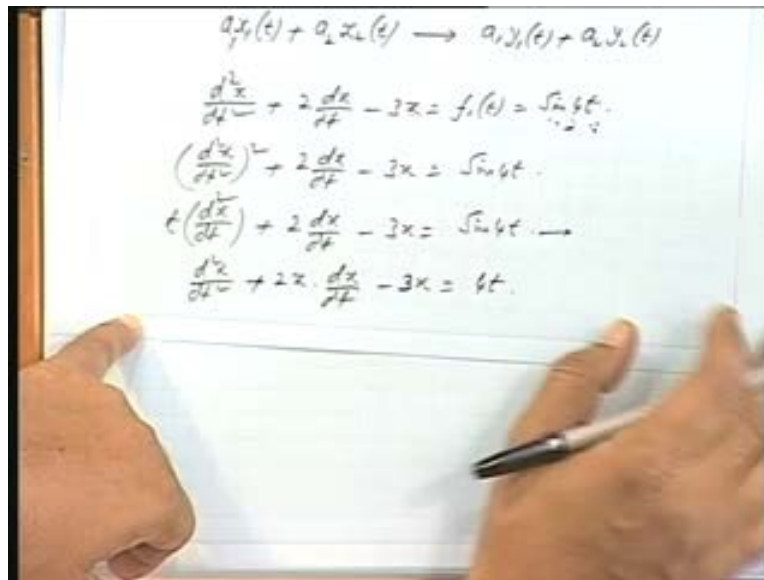 a₁x₁(t) + a₂x₂(t) → a₁y₁(t) + a₂y₂(t)
d²x/dt² + 2 dx/dt - 3x = f₁(t) = Sin 4t.
(d²x/dt²)² + 2 dx/dt - 3x = Sin 4t.
t(d²x/dt) + 2 dx/dt - 3x = Sin 4t. →
d²x/dt² + 2x · dx/dt - 3x = 4t.